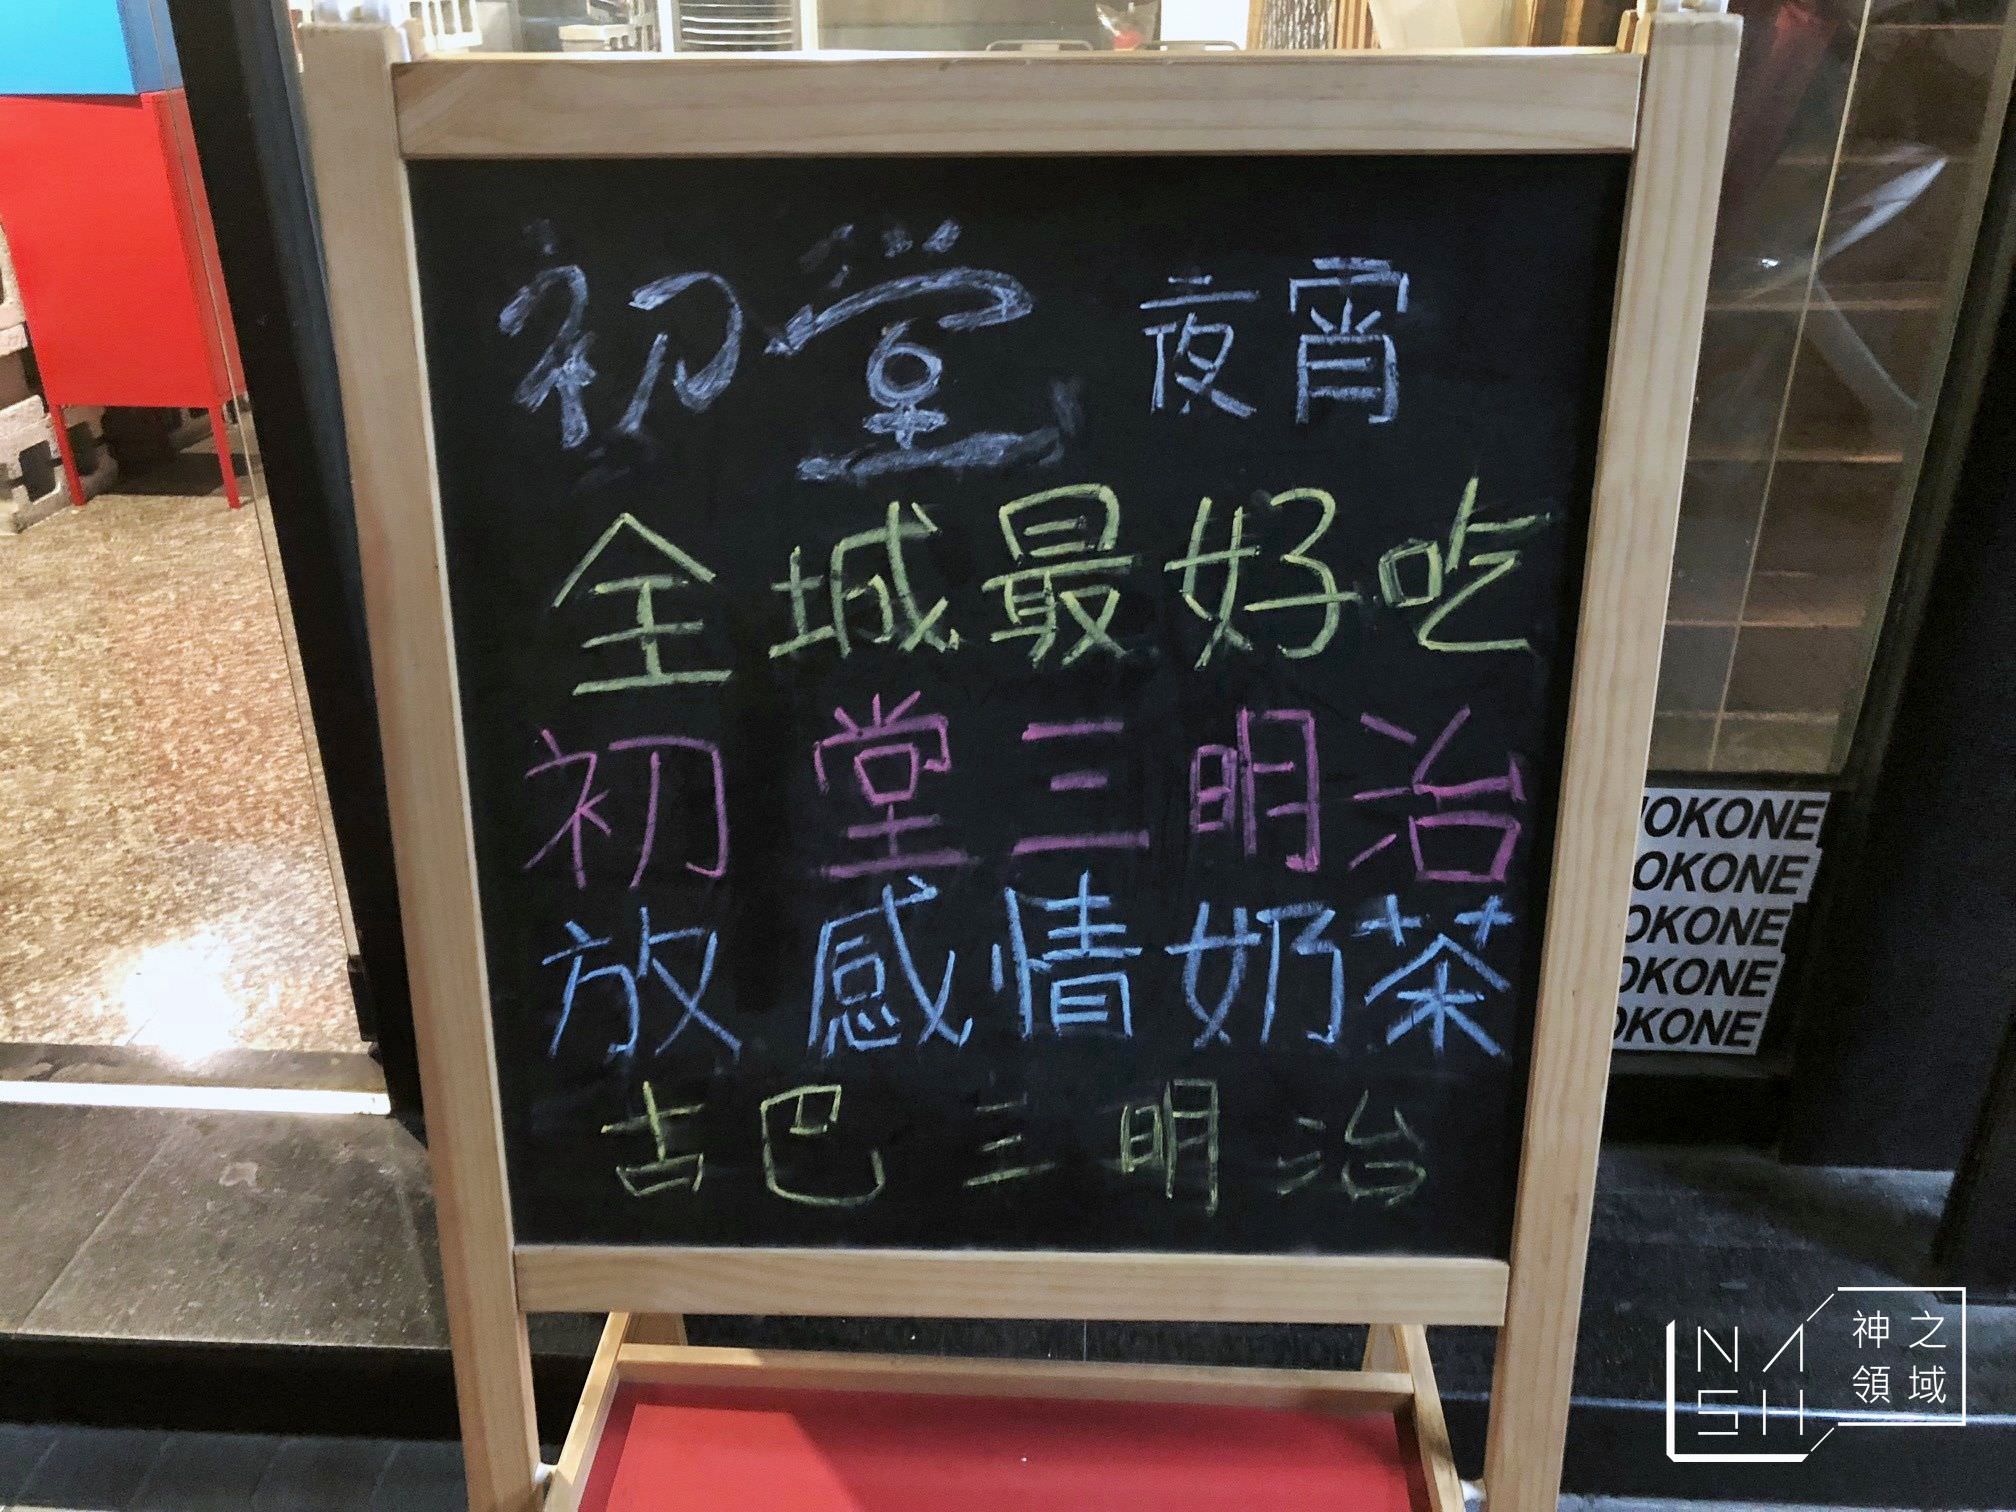 初堂 夜宵
全城最好吃
初堂三明治
放感情奶茶
古巴三明治
OKONE
OKONE
OKONE
OKONE
OKONE
NASH 神之領域